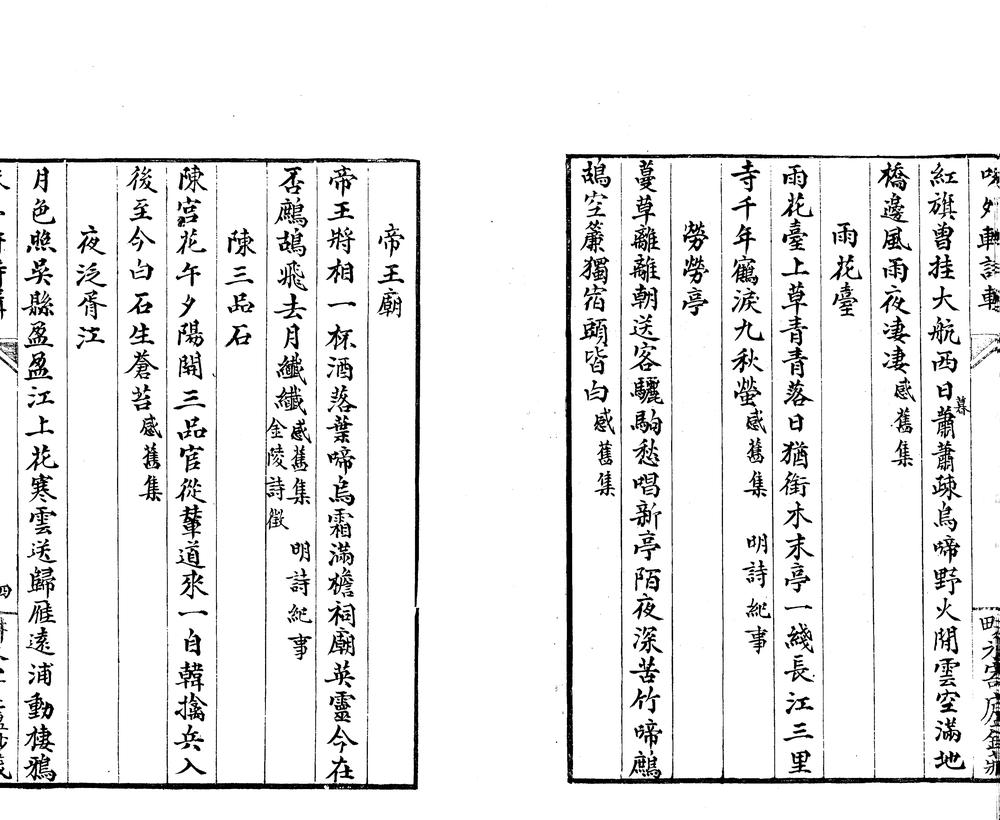 紅旗曾挂大航西日暮蕭蕭疎烏啼野火閒雲空滿地
橋邊風雨夜凄凄感舊集
雨花臺
雨花臺上草青青落日猶銜木末亭一綫長江三里
寺千年鶴淚九秋螢感舊集 明詩紀事
勞勞亭
蔓草離離朝送客驪駒愁唱新亭陌夜深苦竹啼鷓
鴣空簾獨宿頭皆白感舊集
帝王廟
帝王將相一杯酒落葉啼烏霜滿檐祠廟英靈今在
否鷓鴣飛去月纖纖感舊集 明詩紀事
金陵詩徵
陳三品石
陳宮花午夕陽開三品官從輦道來一自韓擒兵入
後至今白石生蒼苔感舊集
夜泛胥江
月色照吳縣盈盈江上花寒雲送歸雁遠浦動棲鴉
四